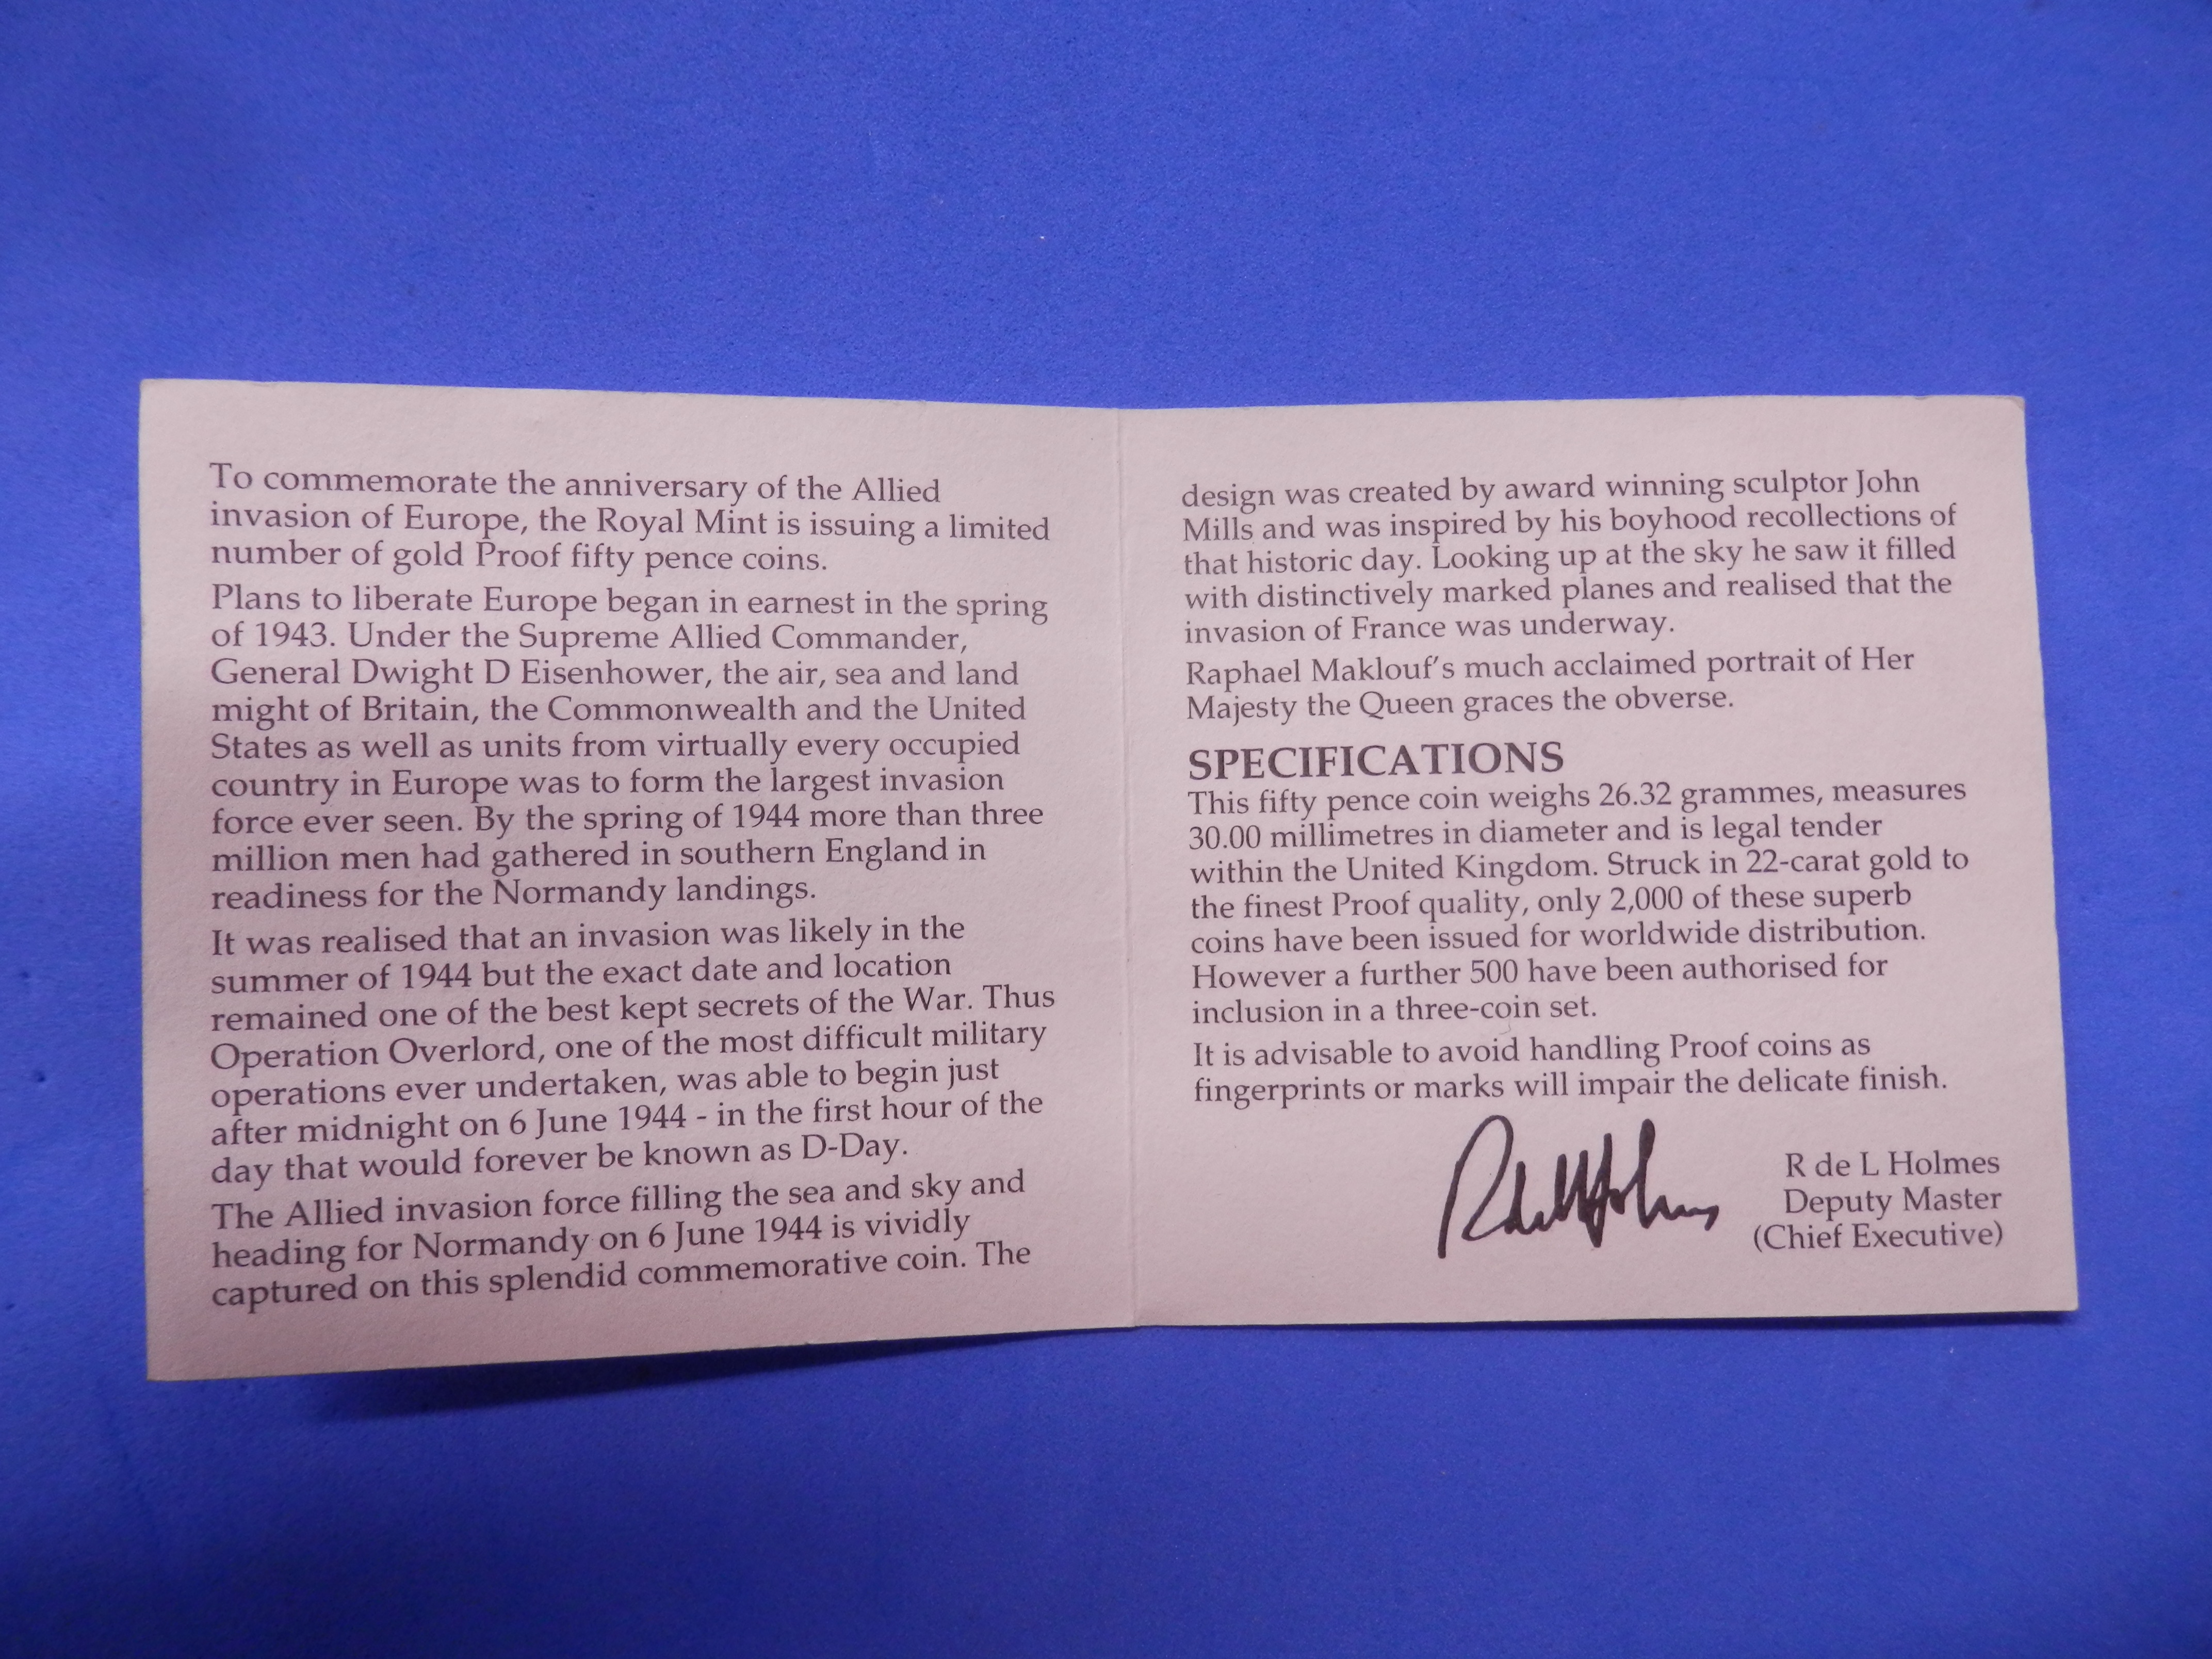 To commemorate the anniversary of the Allied
invasion of Europe, the Royal Mint is issuing a limited
number of gold Proof fifty pence coins.
Plans to liberate Europe began in earnest in the spring
of 1943. Under the Supreme Allied Commander,
General Dwight D Eisenhower, the air, sea and land
might of Britain, the Commonwealth and the United
States as well as units from virtually every occupied
country in Europe was to form the largest invasion
force ever seen. By the spring of 1944 more than three
million men had gathered in southern England in
readiness for the Normandy landings.
It was realised that an invasion was likely in the
summer of 1944 but the exact date and location
remained one of the best kept secrets of the War. Thus
Operation Overlord, one of the most difficult military
operations ever undertaken, was able to begin just
after midnight on 6 June 1944 - in the first hour of the
day that would forever be known as D-Day.
The Allied invasion force filling the sea and sky and
heading for Normandy on 6 June 1944 is vividly
captured on this splendid commemorative coin. The
design was created by award winning sculptor John
Mills and was inspired by his boyhood recollections of
that historic day. Looking up at the sky he saw it filled
with distinctively marked planes and realised that the
invasion of France was underway.
Raphael Maklouf's much acclaimed portrait of Her
Majesty the Queen graces the obverse.
SPECIFICATIONS
This fifty pence coin weighs 26.32 grammes, measures
30.00 millimetres in diameter and is legal tender
within the United Kingdom. Struck in 22-carat gold to
the finest Proof quality, only 2,000 of these superb
coins have been issued for worldwide distribution.
However a further 500 have been authorised for
inclusion in a three-coin set.
It is advisable to avoid handling Proof coins as
fingerprints or marks will impair the delicate finish.
R de L Holmes
R de L Holmes
Deputy Master
(Chief Executive)